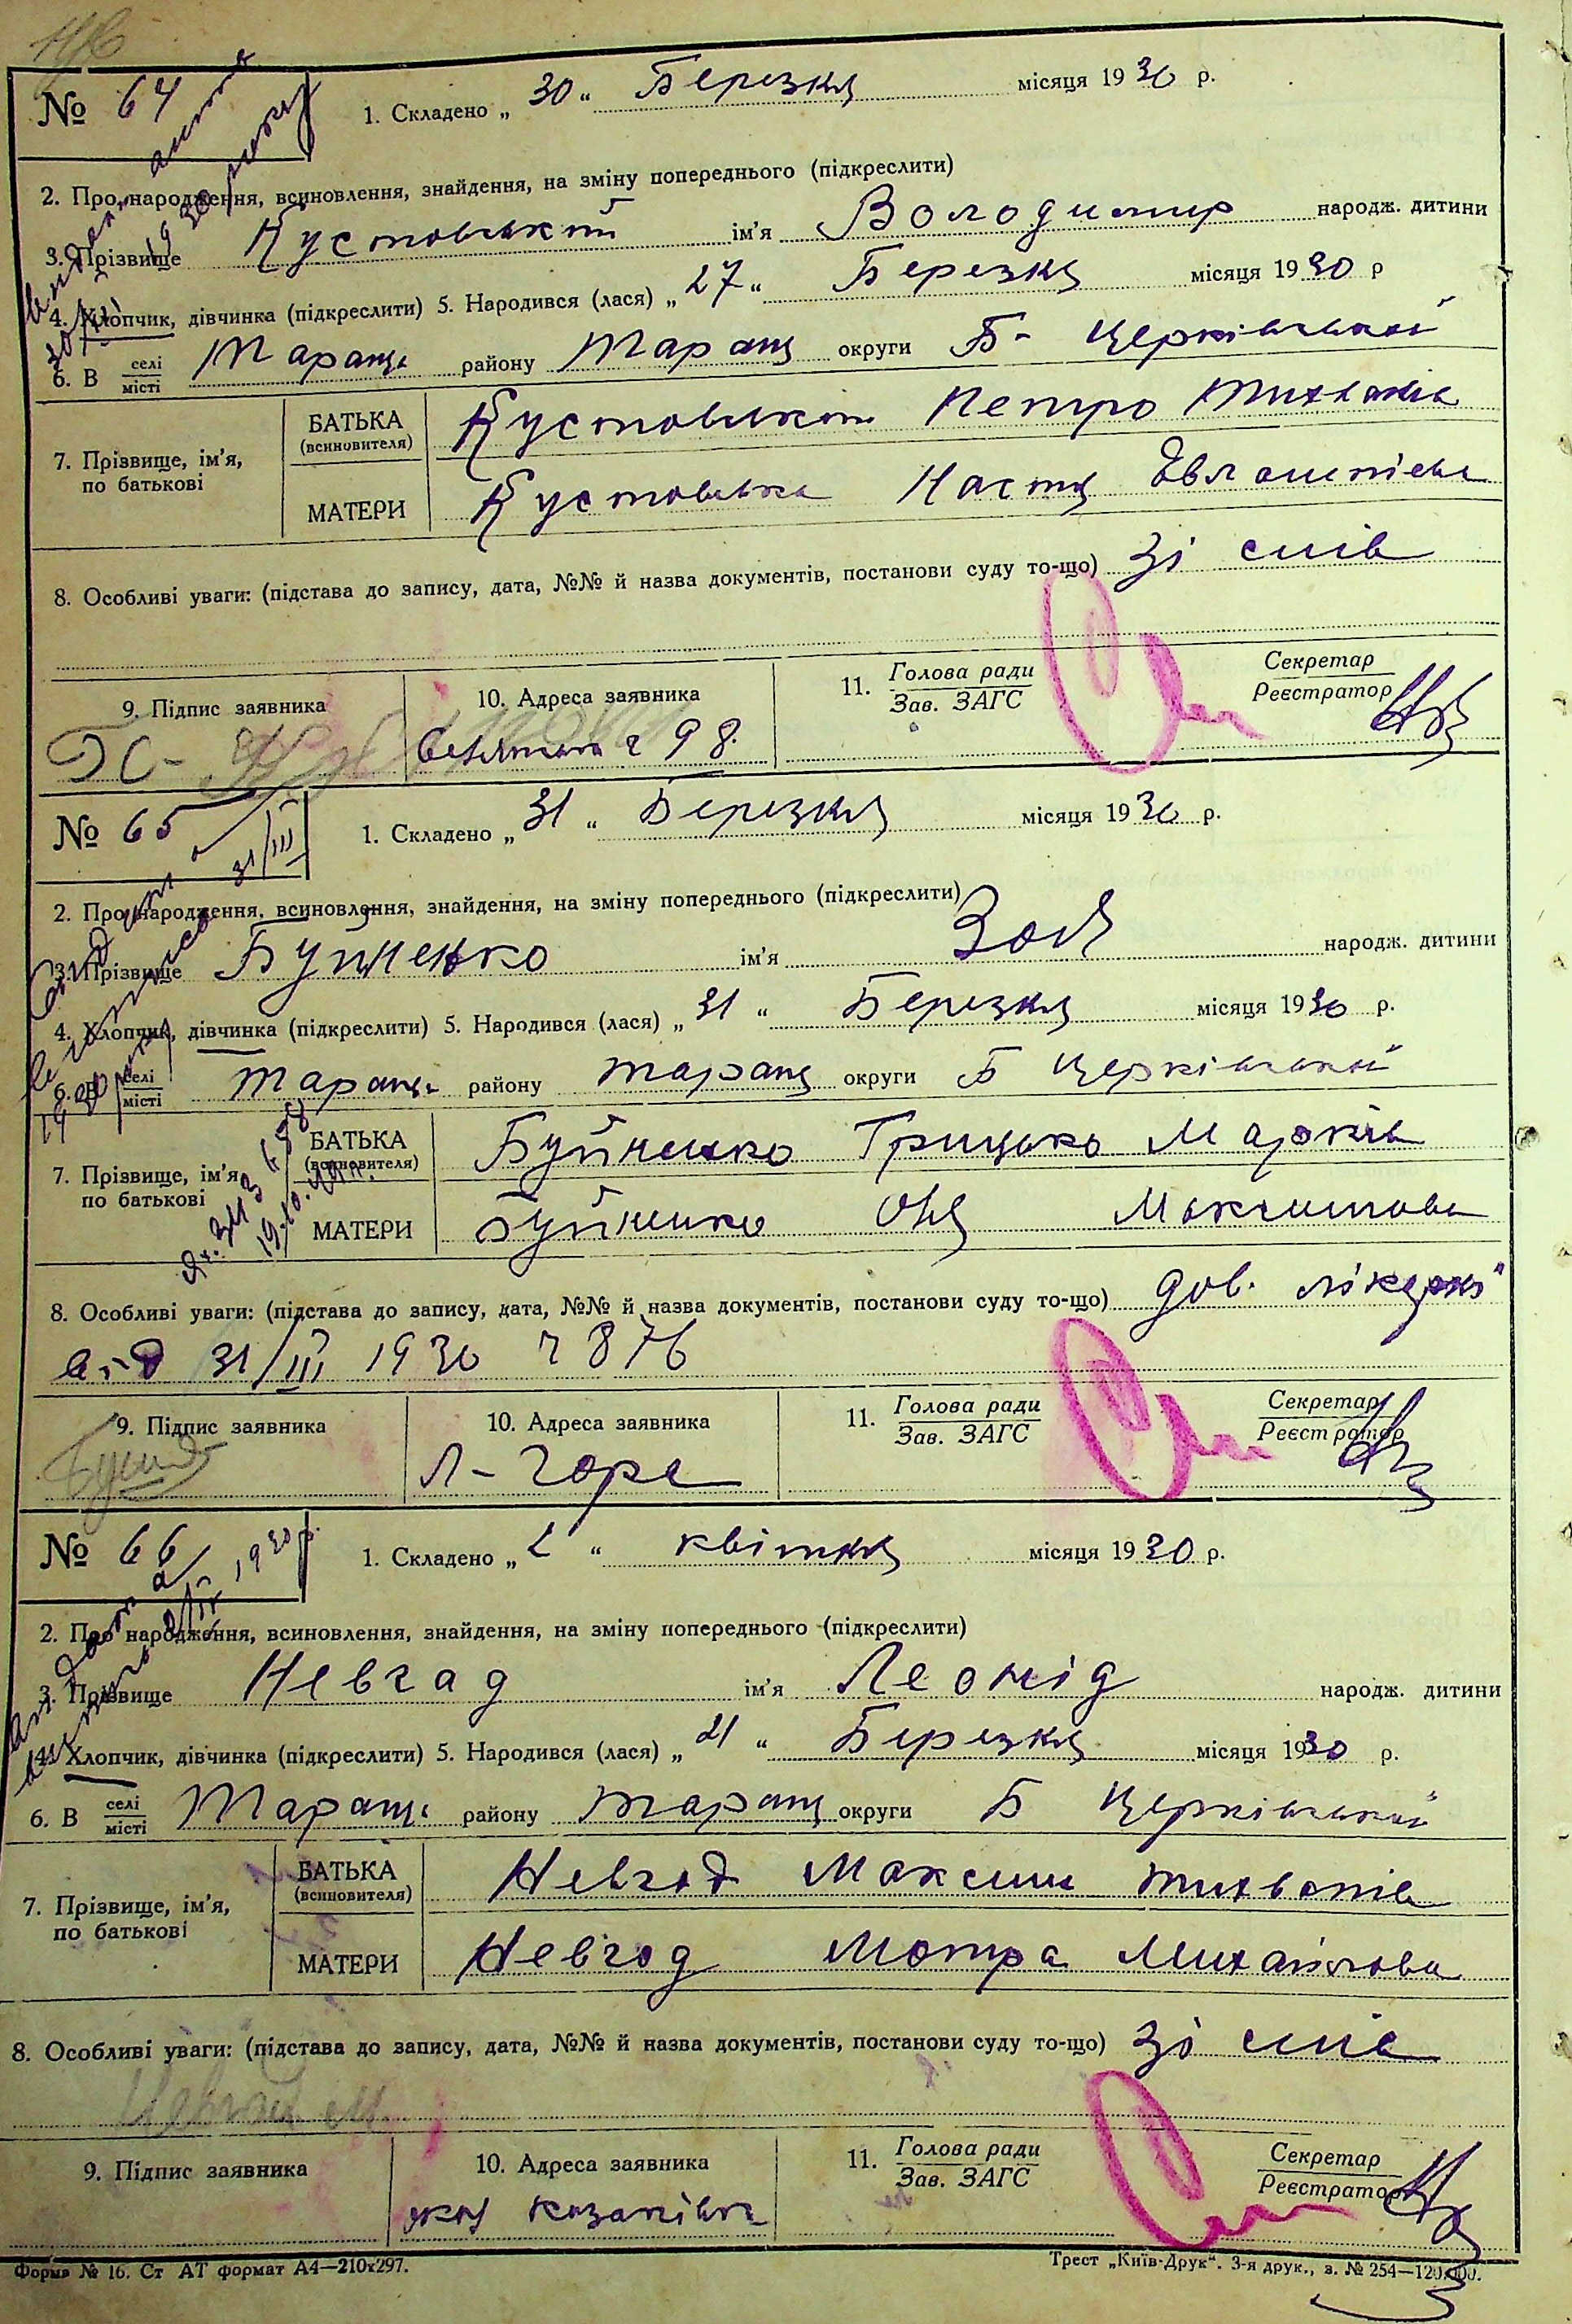 № 64
1. Складено „ 30 “ Березня місяця 1930 р.
2. Про народження, всиновлення, знайдення, на зміну попереднього (підкреслити)
3. Прізвище Кустовський ім'я Володимир народж. дитини
4. Хлопчик, дівчинка (підкреслити) 5. Народився (лася) „ 27 “ Березня місяця 1930 р
6. В селі/місті Тараща району Таращ округи Б- Церківської
7. Прізвище, ім'я, по батькові
БАТЬКА (всиновителя) Кустовський Петро
МАТЕРИ Кустовська Настя
8. Особливі уваги: (підстава до запису, дата, №№ й назва документів, постанови суду то-що) Зі слів
9. Підпис заявника
10. Адреса заявника ч 98.
11. Голова ради / Зав. ЗАГС
Секретар / Реєстратор
№ 65
1. Складено „ 31 “ Березня місяця 1930 р.
31/III
2. Про народження, всиновлення, знайдення, на зміну попереднього (підкреслити)
3. Прізвище Буйненко ім'я Зоя народж. дитини
4. Хлопчик, дівчинка (підкреслити) 5. Народився (лася) „ 31 “ Березня місяця 1930 р.
6. В селі/місті Тараща району Таращ округи Б Церківської
7. Прізвище, ім'я, по батькові
БАТЬКА (всиновителя) Буйненко Грицько Марків
МАТЕРИ Буйненко Оля Максимова
8. Особливі уваги: (підстава до запису, дата, №№ й назва документів, постанови суду то-що) Дов. лікарні
від 31/III 1930 ч 876
9. Підпис заявника
10. Адреса заявника Л- Гора
11. Голова ради / Зав. ЗАГС
Секретар / Реєстратор
№ 66
1. Складено „ 2 “ квітня місяця 1930 р.
2. Про народження, всиновлення, знайдення, на зміну попереднього (підкреслити)
3. Прізвище Невгад ім'я Леонід народж. дитини
4. Хлопчик, дівчинка (підкреслити) 5. Народився (лася) „ 21 “ Березня місяця 1930 р.
6. В селі/місті Тараща району Таращ округи Б Церківської
7. Прізвище, ім'я, по батькові
БАТЬКА (всиновителя) Невгод Максим
МАТЕРИ Невгод Мотря Михайлова
8. Особливі уваги: (підстава до запису, дата, №№ й назва документів, постанови суду то-що) Зі слів
9. Підпис заявника
10. Адреса заявника
11. Голова ради / Зав. ЗАГС
Секретар / Реєстратор
Форма № 16. Ст АТ формат А4—210х297.
Трест „Київ-Друк“. 3-я друк., з. № 254—120.000.